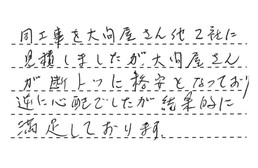 同工事を大問屋さん他2社に
見積しましたが大問屋さん
が断トツに格安となっており
逆に心配でしたが結果的に
満足しております